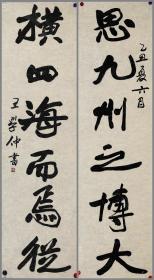 思九州之博大
乙丑夏六月
横四海而焉從
王學仲書